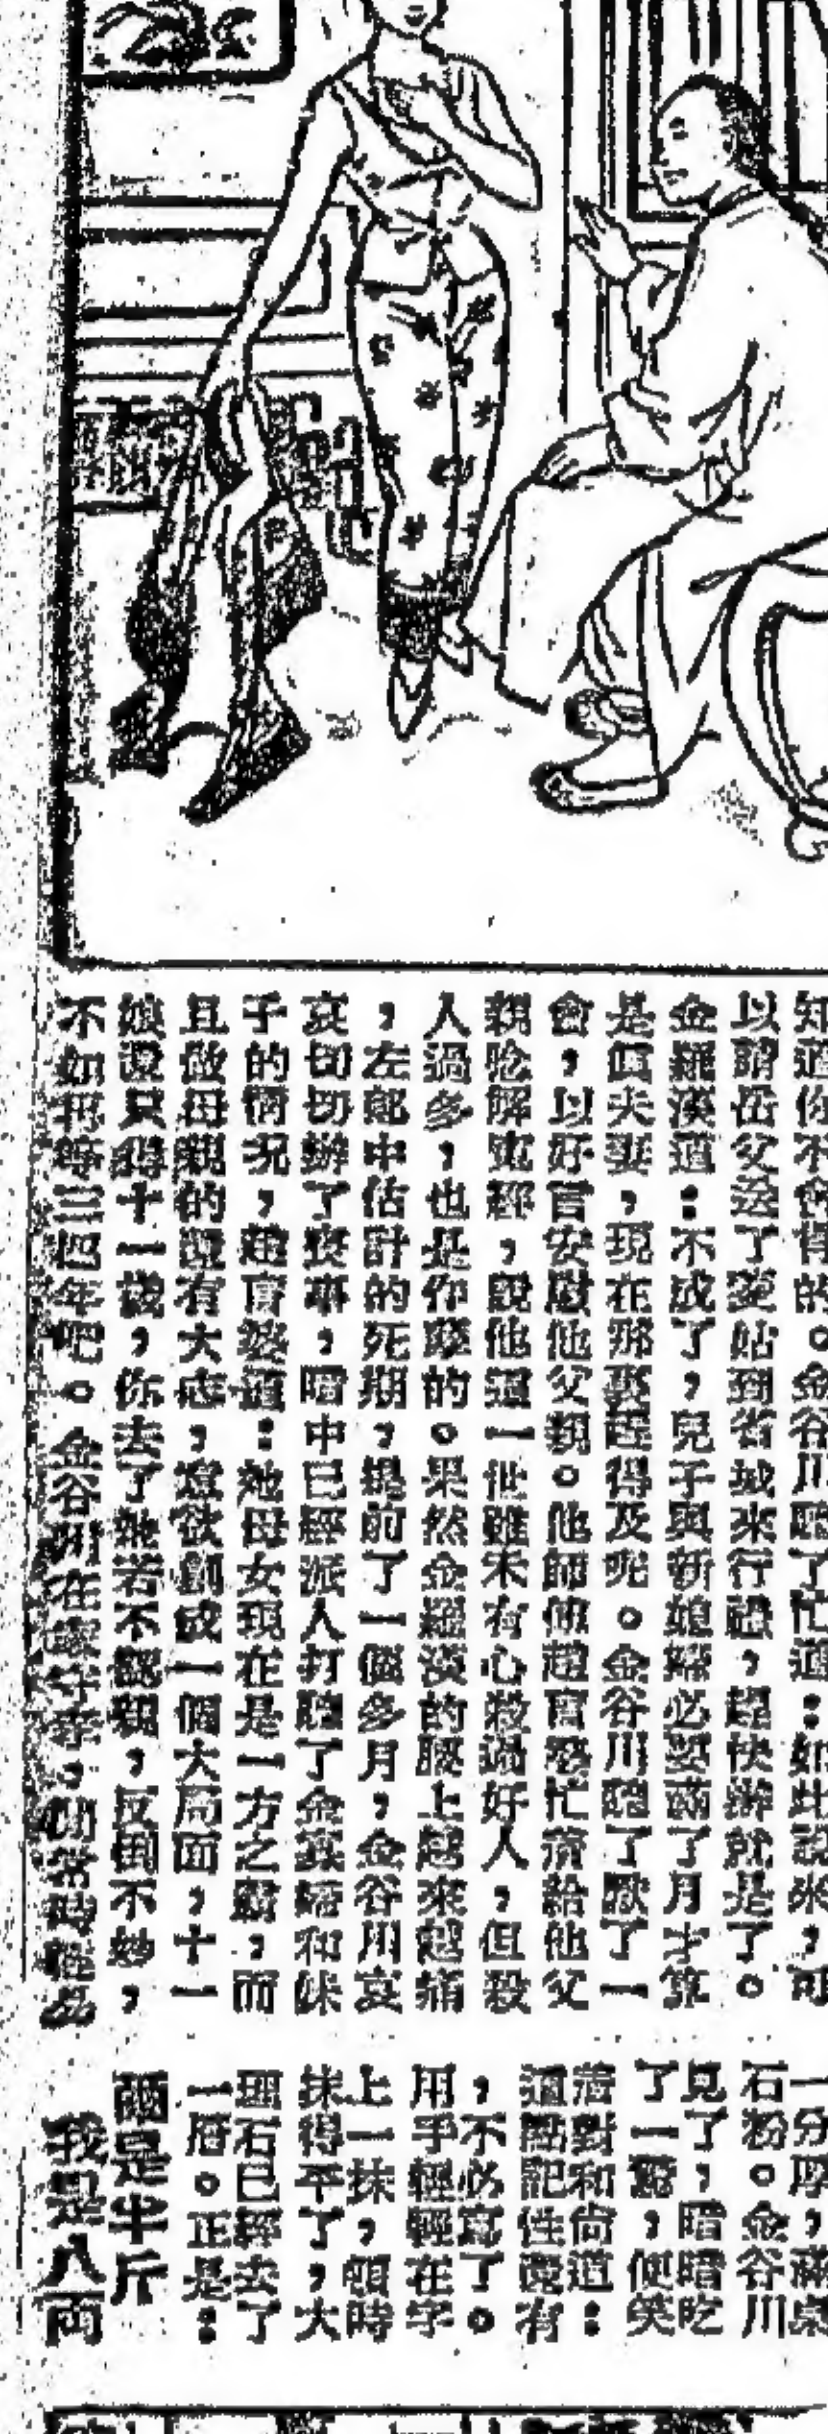 知道你不會肯的。金谷川聽了忙道：如此說來，可
以請岳父送了寃姑到省城來行禮，趕快辦就是了。
金羅漢道：不成了，兒子與新媳婦必要滿了月才算
是眞夫妻，現在那裏趕得及呢。金谷川聽了默了一
會，以好言安慰他父親。他師傅趙官婆忙着給他父
親唸解寃經，說他這一世雖未有心殺過好人，但殺
人過多，也是作孽的。果然金羅漢的腰上越來越痛
，左郎中估計的死期，提前了一個多月，金谷川哀
哀切切辦了喪事，暗中已經派人打聽了金寡婦和妹
子的情况，趙官婆道：她母女現在是一方之霸，而
且做母親的還有大志，意欲創成一個大局面，十一
娘還只得十一歲，你去了她若不認親，反倒不妙，
不如再等三四年吧。金谷川在家守孝，閒常時
一分厚，滿桌
石粉。金谷川
見了，暗暗吃
了一驚，便笑
着對和尚道：
這點記性還有
，不必寫了。
用手輕輕在字
上一抹，頓時
抹得平了，大
理石已經去了
一層。正是：
爾是半斤
我是八両